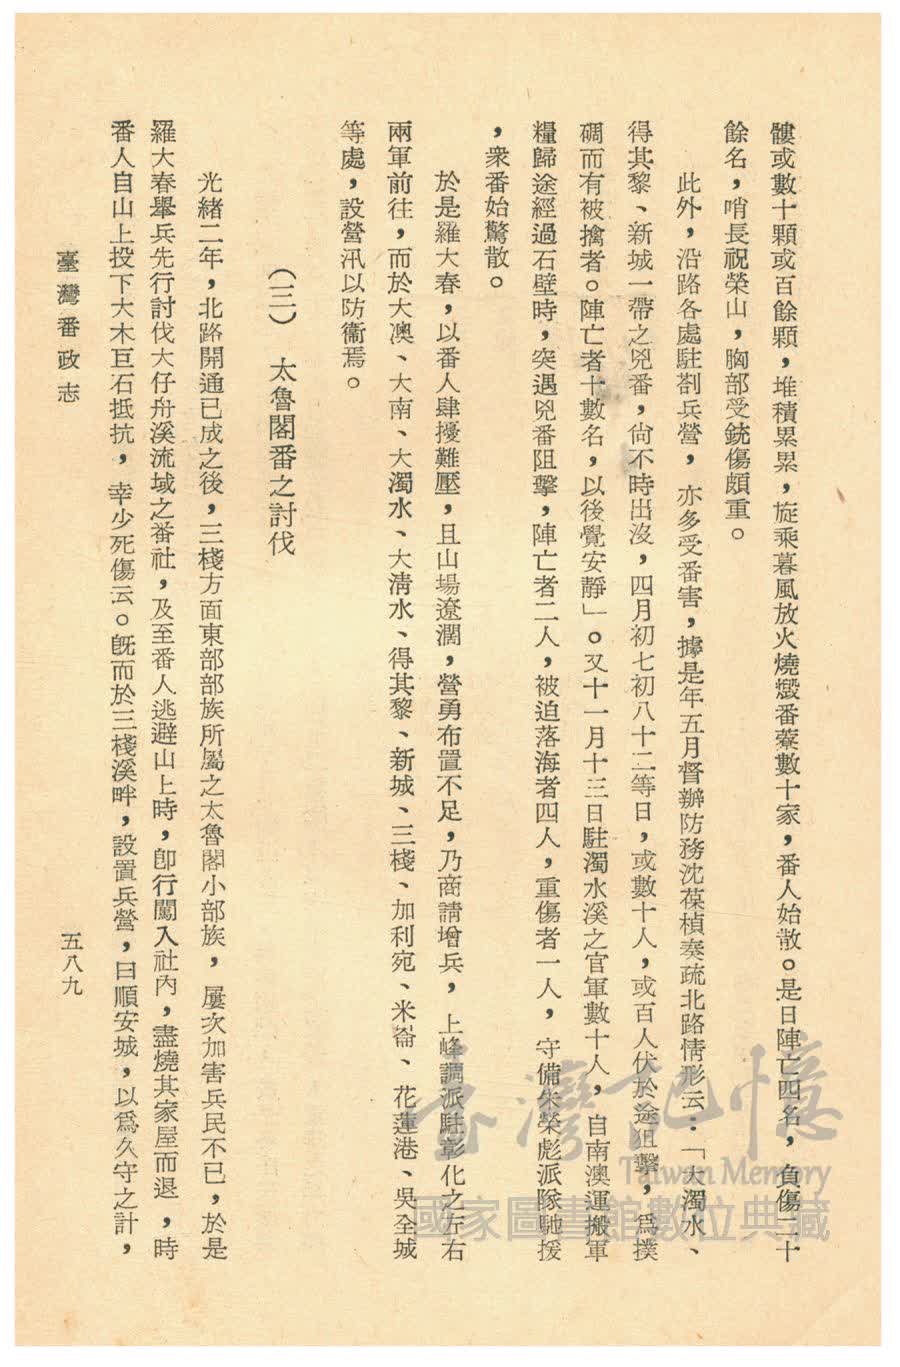 髏或數十顆或百餘顆，堆積累累，旋乘暮風放火燒燬番藔數十家，番人始散。是日陣亡四名，負傷二十
餘名，哨長祝榮山，胸部受銃傷頗重。
此外，沿路各處駐剳兵營，亦多受番害，據是年五月督辦防務沈葆楨奏疏北路情形云：「大濁水、
得其黎、新城一帶之兇番，尙不時出沒，四月初七初八十二等日，或數十人，或百人伏於途狙擊，爲撲
碉而有被擒者。陣亡者十數名，以後覺安靜」。又十一月十三日駐濁水溪之官軍數十人，自南澳運搬軍
糧歸途經過石壁時，突遇兇番阻擊，陣亡者二人，被迫落海者四人，重傷者一人，守備朱榮彪派隊馳援
，衆番始驚散。
於是羅大春，以番人肆擾難壓，且山場遼濶，營勇布置不足，乃商請增兵，上峰調派駐彰化之左右
兩軍前往，而於大澳、大南、大濁水、大淸水、得其黎、新城、三棧、加利宛、米崙、花蓮港、吳全城
等處，設營汛以防衞焉。
（三）　太魯閣番之討伐
光緒二年，北路開通已成之後，三棧方面東部部族所屬之太魯閣小部族，屢次加害兵民不已，於是
羅大春舉兵先行討伐大仔舟溪流域之番社，及至番人逃避山上時，卽行闖入社內，盡燒其家屋而退，時
番人自山上投下大木巨石抵抗，幸少死傷云。旣而於三棧溪畔，設置兵營，曰順安城，以爲久守之計，
臺灣番政志
五八九
臺灣記憶
Taiwan Memory
國家圖書館數位典藏